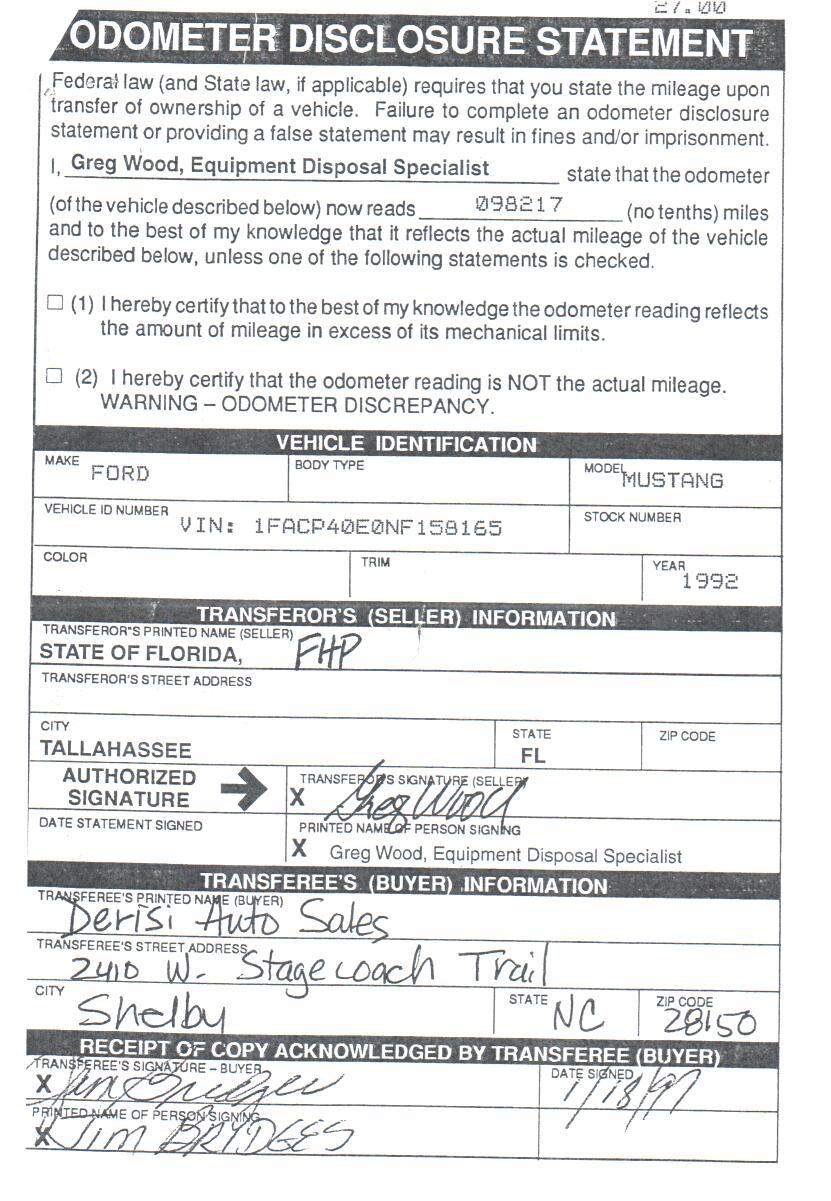 27.00
ODOMETER DISCLOSURE STATEMENT
Federal law (and State law, if applicable) requires that you state the mileage upon
transfer of ownership of a vehicle. Failure to complete an odometer disclosure
statement or providing a false statement may result in fines and/or imprisonment.
I, Greg Wood, Equipment Disposal Specialist state that the odometer
(of the vehicle described below) now reads 098217 (no tenths) miles
and to the best of my knowledge that it reflects the actual mileage of the vehicle
described below, unless one of the following statements is checked.
☐ (1) I hereby certify that to the best of my knowledge the odometer reading reflects
the amount of mileage in excess of its mechanical limits.
☐ (2) I hereby certify that the odometer reading is NOT the actual mileage.
WARNING – ODOMETER DISCREPANCY.
VEHICLE IDENTIFICATION
MAKE FORD BODY TYPE MODEL MUSTANG
VEHICLE ID NUMBER VIN: 1FACP40E0NF158165 STOCK NUMBER
COLOR TRIM YEAR 1992
TRANSFEROR'S (SELLER) INFORMATION
TRANSFEROR'S PRINTED NAME (SELLER)
STATE OF FLORIDA, FHP
TRANSFEROR'S STREET ADDRESS
CITY STATE ZIP CODE
TALLAHASSEE FL
AUTHORIZED SIGNATURE → TRANSFEROR'S SIGNATURE (SELLER)
X Greg Wood
DATE STATEMENT SIGNED PRINTED NAME OF PERSON SIGNING
X Greg Wood, Equipment Disposal Specialist
TRANSFEREE'S (BUYER) INFORMATION
TRANSFEREE'S PRINTED NAME (BUYER)
Derisi Auto Sales
TRANSFEREE'S STREET ADDRESS
2410 W. Stagecoach Trail
CITY STATE ZIP CODE
Shelby NC 28150
RECEIPT OF COPY ACKNOWLEDGED BY TRANSFEREE (BUYER)
TRANSFEREE'S SIGNATURE – BUYER DATE SIGNED
X Jim Bridges 1/18/97
PRINTED NAME OF PERSON SIGNING
X Jim BRYDGES